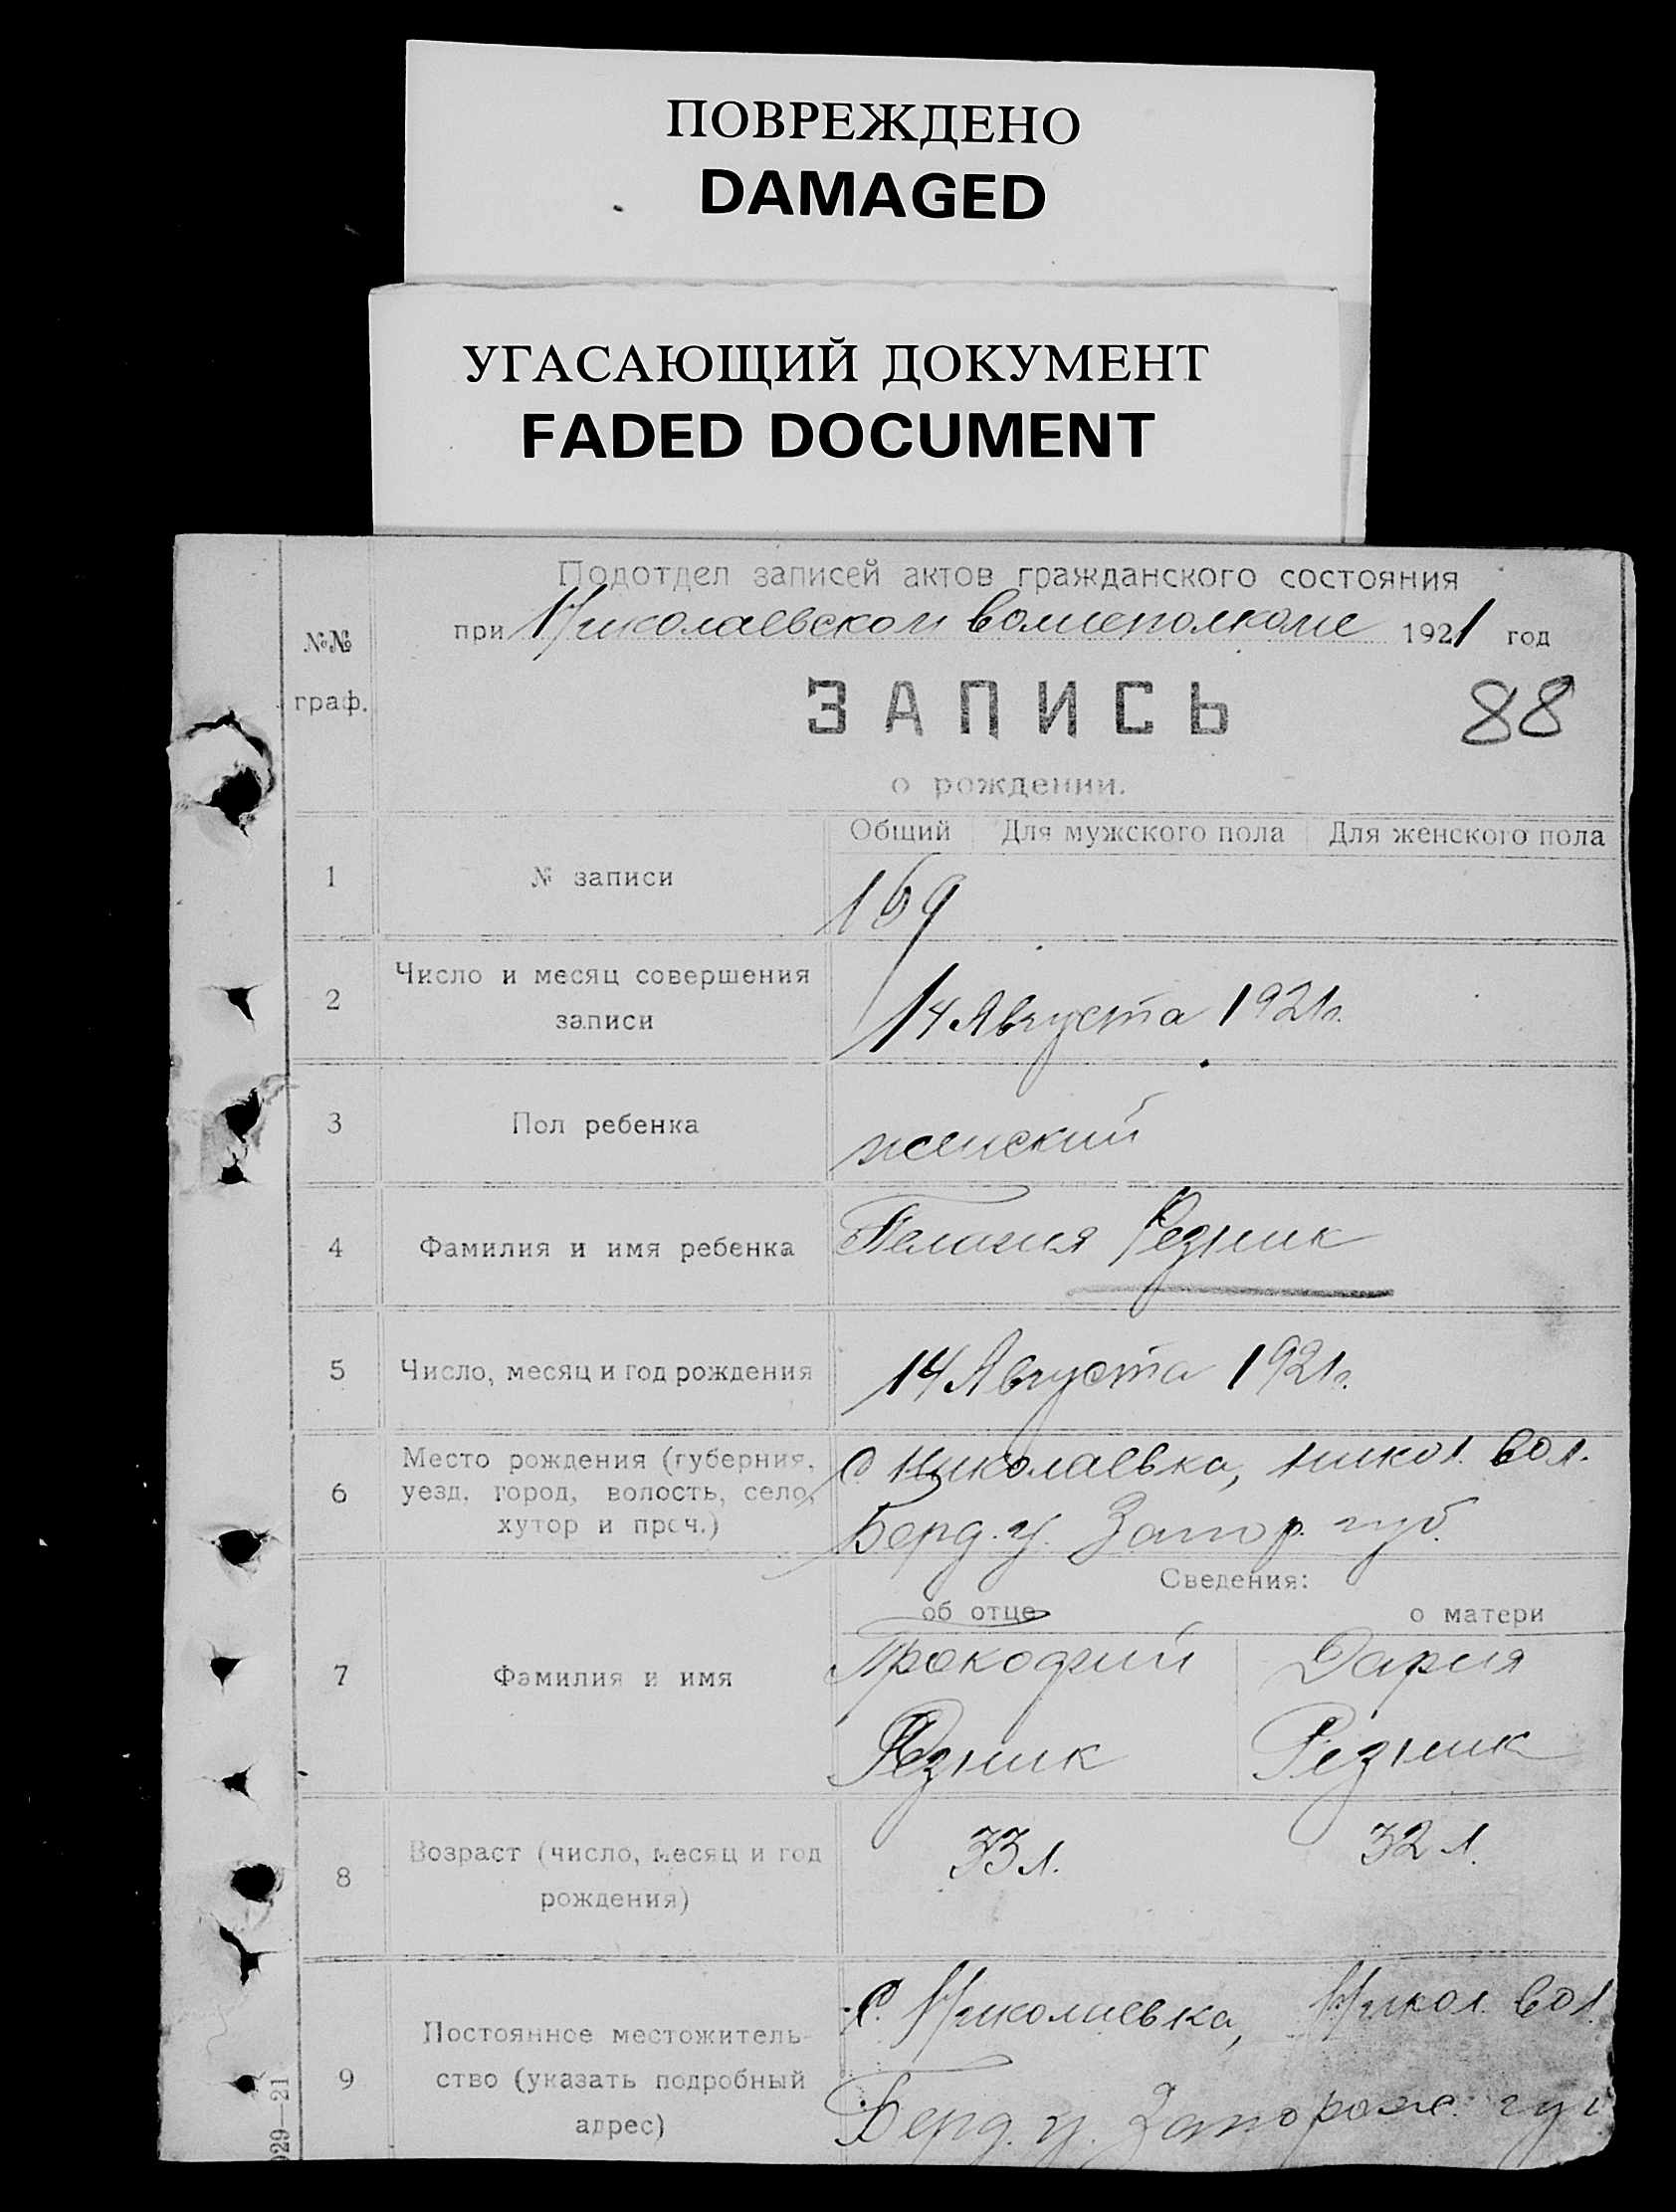 ПОВРЕЖДЕНО
DAMAGED
УГАСАЮЩИЙ ДОКУМЕНТ
FADED DOCUMENT
Подотдел записей актов гражданского состояния
при Николаевском волисполкоме 1921 год
№№
граф.
ЗАПИСЬ
88
о рождении.
Общий Для мужского пола Для женского пола
1 № записи 169
2 Число и месяц совершения
записи 14 Августа 1921г.
3 Пол ребенка женский
4 Фамилия и имя ребенка Пелагия Резник
5 Число, месяц и год рождения 14 Августа 1921г.
6 Место рождения (губерния,
уезд, город, волость, село,
хутор и проч.)
С Николаевка, Никол. вол.
Берд. у. Запор. губ.
Сведения:
об отце о матери
7 Фамилия и имя
Прокофий Дария
Резник Резник
8 Возраст (число, месяц и год
рождения)
33 л. 32 л.
9 Постоянное местожитель-
ство (указать подробный
адрес)
С. Николаевка, Никол. вол.
Берд. у. Запорож. гу
029—21